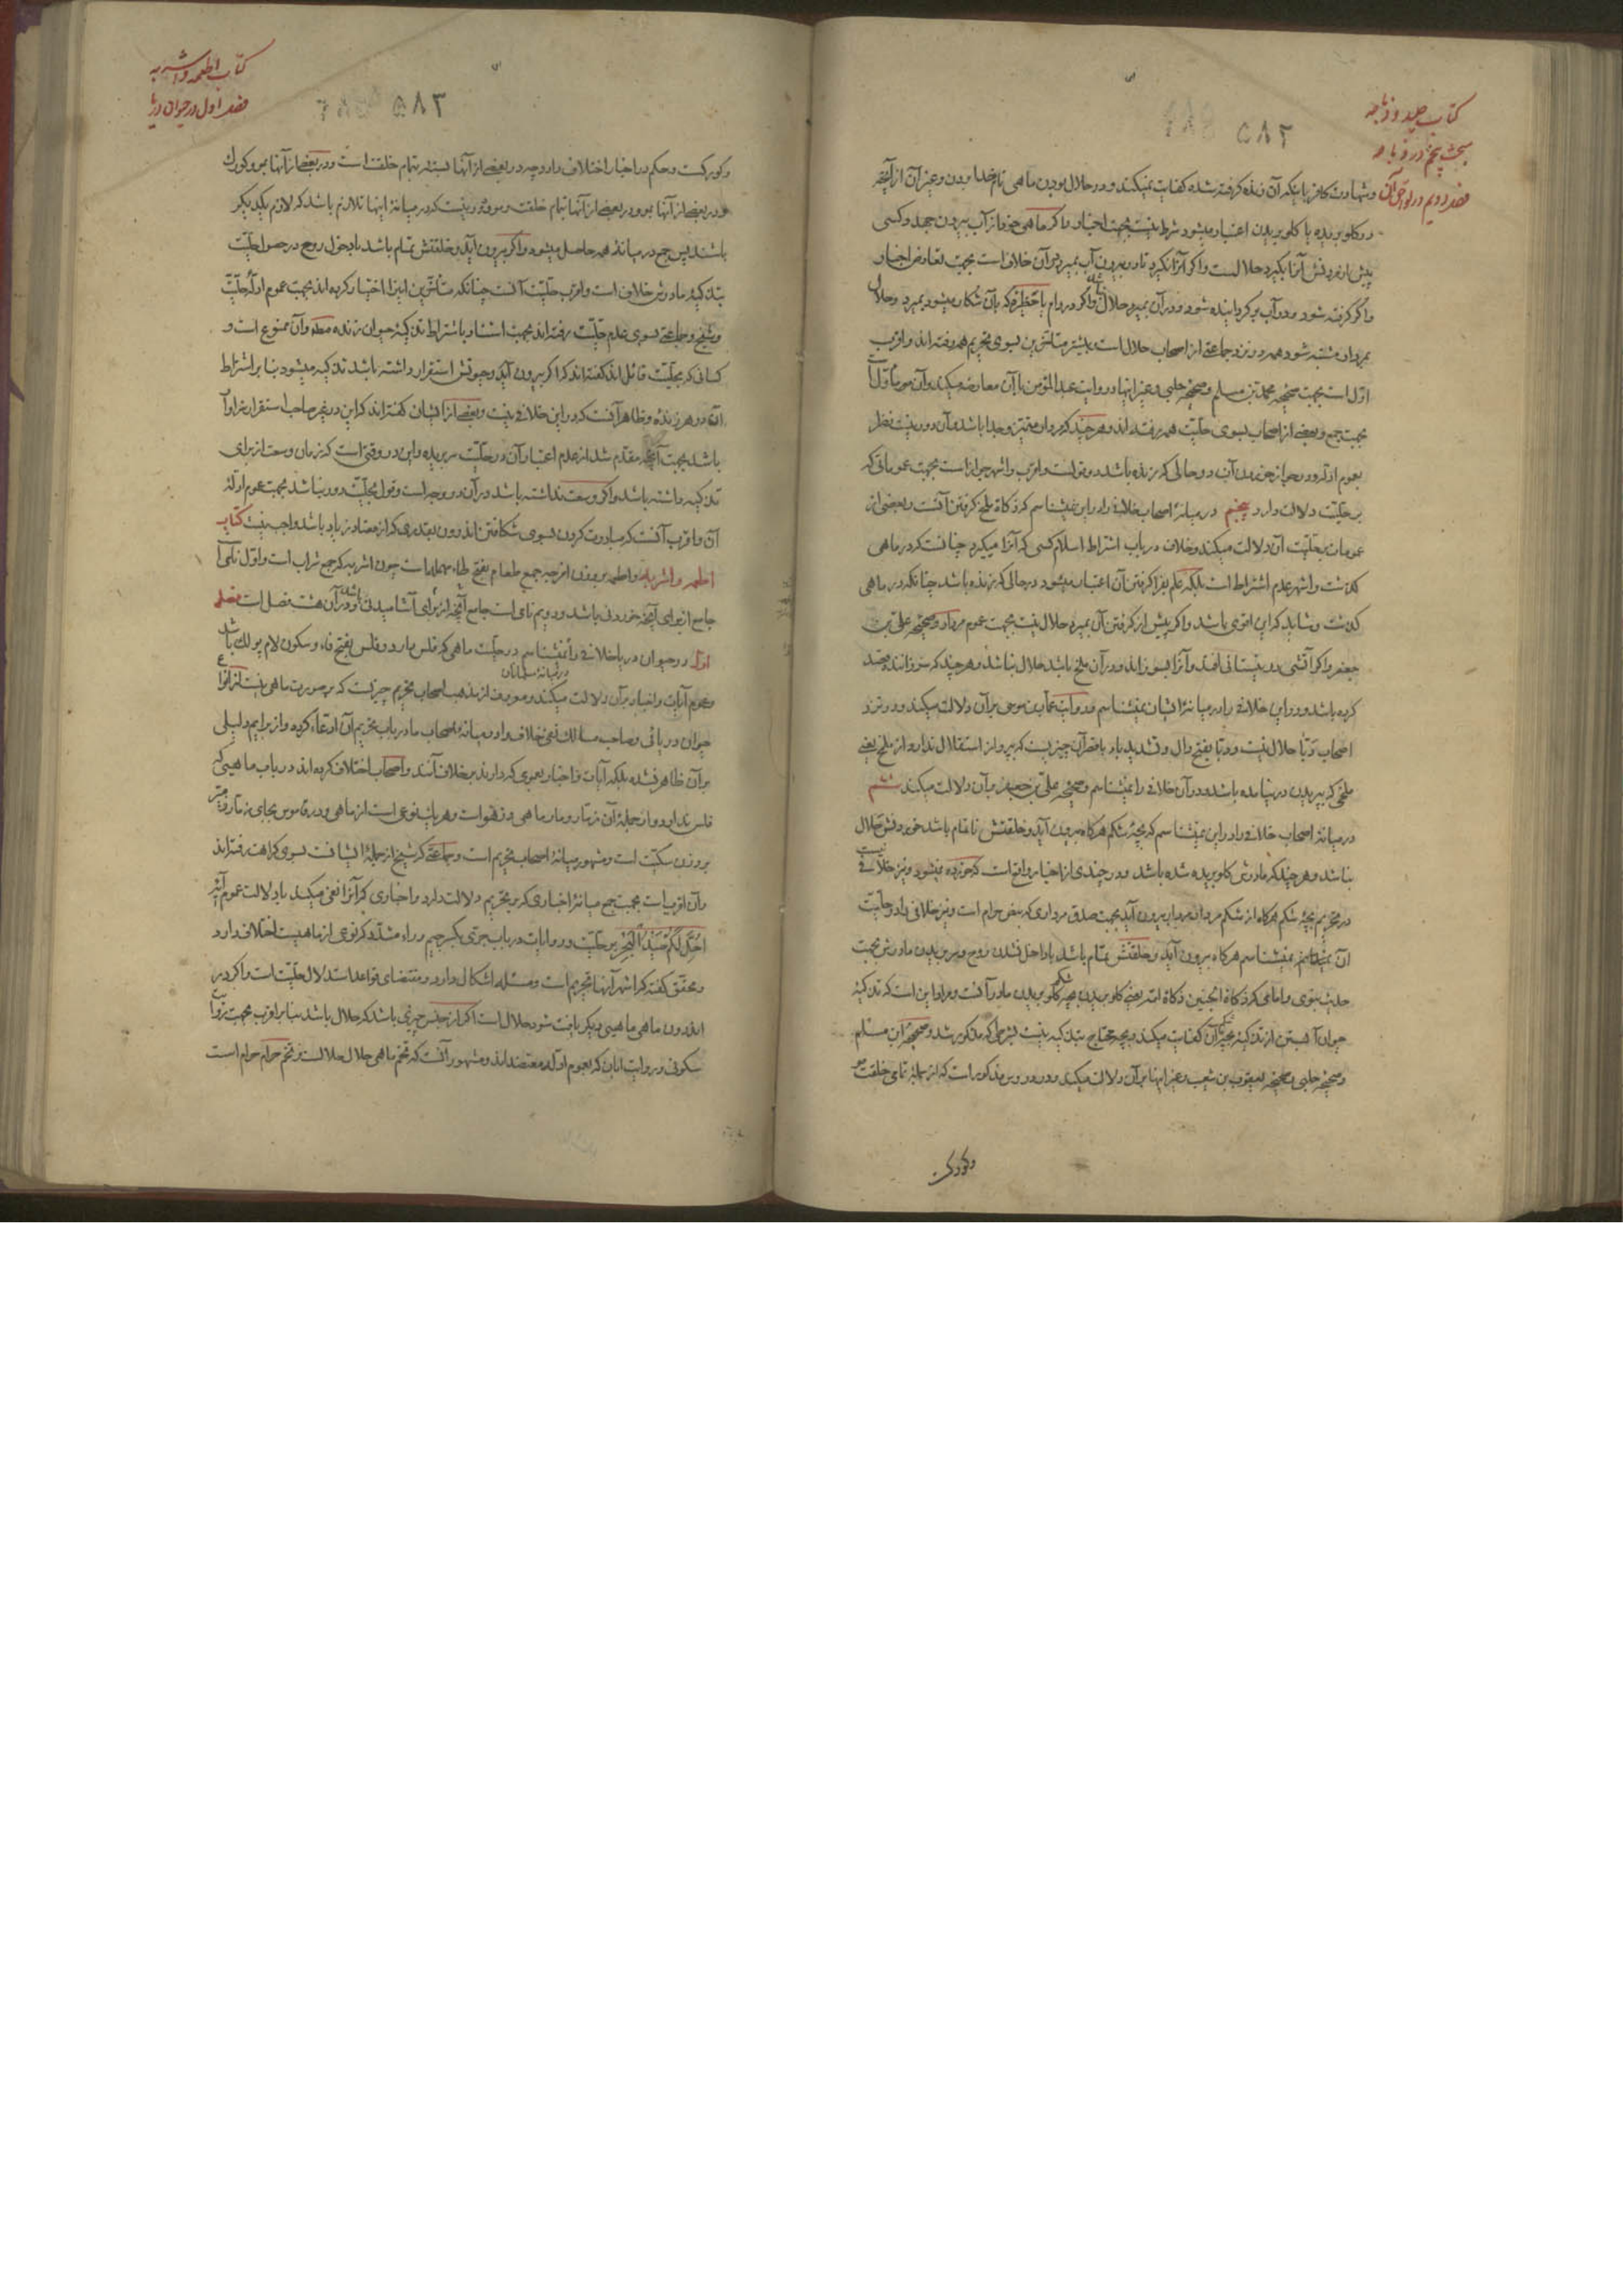 کتاب صید و ذباحه
۵۸۲
مبحث پنجم در ذباحه
فصل دویم در لواحق آن
و شهادت کافر باینکه آن زنده گرفته شده کفایت نمیکند و در حلال بودن ماهی نام خدا بردن و غیر آن از آنچه
در گلو بریده یا گلو بریدن اعتبار میشود شرط نیست بجهت اخبار و اگر ماهی خود از آب بیرون جهد و کسی
پیش از مردنش آنرا بگیرد حلالست و اگر آنرا نگیرد تا در بیرون آب بمیرد در آن خلاف است بجهت تعارض اخبار
و اگر گرفته شود و در آب برگردانیده شود و در آن بمیرد حلال نباشد و اگر در دام یا حظیره که بآن شکار میشود بمیرد و حلال
بمردار مشتبه شود همه در نزد جماعتی از اصحاب حلال است و بیشتر متأخرین بسوی تحریم همه رفته اند و اقرب
اول است بجهت صحیحه محمد بن مسلم و صحیحه حلبی و غیر اینها و روایت عبد المؤمن با آن معارضه میکند و آن مؤول است
بجهت جمع و بعضی از اصحاب بسوی حلیت همه رفته اند و هر چند که مردار متمیز و جدا باشد و آن دور نیست نظر
بعموم ادله و در جواز خوردن آن در حالی که زنده باشد دو قولست و اقرب و اشهر جواز است بجهت عموماتی که
بر حلیت دلالت دارد پنجم در میانهٔ اصحاب خلافی را در این نمیشناسم که ذکاة ملخ گرفتن آنست و بعضی از
عمومات بر حلیت آن دلالت میکند و خلاف در باب اشتراط اسلام کسی که آنرا میگیرد چنانست که در ماهی
گذشت و اشهر عدم اشتراط است بلکه علم بفرا گرفتن آن اعتبار میشود در حالی که زنده باشد چنانکه در ماهی
گذشت و شاید که این اقوی باشد و اگر پیش از گرفتن آن بمیرد حلال نیست بجهت عموم مردار و صحیحه علی بن
جعفر و اگر آتشی در نیستانی افتد و آنرا بسوزاند و در آن ملخ باشد حلال نباشد و هر چند که سوزاننده قصد
کرده باشد و در این خلافی را در میانهٔ ایشان نمیشناسم و روایت عمار بن موسی بر آن دلالت میکند و در نزد
اصحاب دبا حلال نیست و دبا بفتح دال و تشدید باء با قصر آن چیزیست که بپرواز استقلال ندارد از ملخ یعنی
ملخی که بپریدن در نیامده باشد و در آن خلافی را نمیشناسم و صحیحه علی بن جعفر بر آن دلالت میکند ششم
در میانهٔ اصحاب خلافی را در این نمیشناسم که بچهٔ شکم هرگاه بیرون آید و خلقتش ناتمام باشد خوردنش حلال
نباشد و هر چند که مادرش گلو بریده شده باشد و در چندی از اخبار واقع است که خورده نمیشود و نیز خلافی نیست
در تحریم بچهٔ شکم هرگاه از شکم مردار مردار بیرون آید بجهت صدق مرداری که بنص حرام است و نیز خلافی را در حلیت
آن نمیشناسم هرگاه بیرون آید و خلقتش تمام باشد با داخل نشدن روح و بریدن مادرش بجهت
حدیث نبوی و امامی که ذکاة الجنین ذکاة امه یعنی گلو بریدن بچه شکم گلو بریدن مادر آنست و مراد این است که تذکیهٔ
حیوان آبستن از تذکیهٔ بچه آن کفایت میکند و بچه محتاج بتذکیه نیست بشرطی که مذکور شد و صحیحهٔ ابن مسلم
و صحیحه حلبی و صحیحه یعقوب بن شعیب و غیر اینها بر آن دلالت میکند و در دروس مذکور است که از جملهٔ تمامی خلقت مو
و کورکست
کتاب اطعمه و اشربه
۵۸۳
فصل اول در حیوان دریا
و کورکست و حکم در اخبار اختلاف دارد چه در بعضی از آنها بسته بتمام خلقت است و در بعضی از آنها بمو و کورک
و در بعضی از آنها بمو و در بعضی از آنها تمام خلقت و مو و دور نیست که در میانهٔ اینها تلازم باشد که لازم یکدیگر
باشند پس جمع در میانهٔ همه حاصل میشود و اگر بیرون آید و خلقتش تمام باشد با دخول روح در حصول حلیت
بتذکیهٔ مادرش خلاف است و اقرب حلیت آنست چنانکه متأخرین اینرا اختیار کرده اند بجهت عموم ادلهٔ حلیت
و شیخ و جماعتی بسوی عدم حلیت رفته اند بجهت استناد باشتراط تذکیهٔ حیوان زنده مطلقا و آن ممنوع است و
کسانی که بحلیت قائل اند گفته اند که اگر بیرون آید و حیوتش استقرار داشته باشد تذکیه میشود بنا بر اشتراط
آن در هر زنده و ظاهر آنست که در این خلافی نیست و بعضی از ایشان گفته اند که این در غیر صاحب استقرار مراد آن
باشد بجهت آنچه مقدم شد از عدم اعتبار آن در حلیت سر بریده و این در وقتی است که زمان وسعت از برای
تذکیه داشته باشد و اگر وسعت نداشته باشد در آن دو وجه است و قول بحلیت دور نباشد بجهت عموم ادلهٔ
آن و اقرب آنست که مبادرت کردن بسوی شکافتن اندرون بقدری که از معتاد زیاد باشد واجب نیست کتاب
اطعمه و اشربه و اطعمه بر وزن افرجه جمع طعام بفتح طاء مهمله است چون اشربه که جمع شراب است و اول نامی
جامع از برای آنچه خوردنی باشد و دویم نامی است جامع آنچه از برای آشامیدنی باشد و در آن هشت فصل است فصل
اول در حیوان دریا خلافی را نمیشناسم در حلیت ماهی که فلس دارد و فلس بفتح فاء و سکون لام پولک باشد
در میانهٔ مسلمانان
و عموم آیات و اخبار بر آن دلالت میکند و معروف از مذهب اصحاب تحریم چیزیست که بر صورت ماهی نیست از انواع
حیوان دریائی و صاحب مسالک نفی خلاف را در میانهٔ اصحاب ما در باب تحریم آن ادعاء کرده و از برایم دلیلی
بر آن ظاهر نشده بلکه آیات و اخبار بعمومی که دارند بر خلاف آنند و اصحاب اختلاف کرده اند در باب ماهیئی که
فلس ندارد و از جملهٔ آن زمار و مار ماهی و زهو است و هر یک نوعی است از ماهی و در قاموس بجای زمار زمیر
بر وزن سکیت است و مشهور میانهٔ اصحاب تحریم است و جماعتی که شیخ از جملهٔ ایشانست بسوی کراهت رفته اند
و آن اقوی است بجهت جمع میانهٔ اخباری که بر تحریم دلالت دارد و اخباری که آنرا نفی میکند با دلالت عموم آیهٔ
احل لکم صید البحر بر حلیت و روایات در باب جری بکسر جیم و راء مشدد که نوعی از ماهیست اختلاف دارد
و محقق گفته که اشهر آنها تحریم است و مسئله اشکال دارد و مقتضای قواعد استدلال حلیت است و اگر در
اندرون ماهی ماهیئی دیگر یافت شود حلال است اگر از جنس چیزی باشد که حلال باشد بنا بر اقرب بجهت روایت
سکونی و روایت ابان که بعموم ادله معتضد اند و مشهور آنست که تخم ماهی حلال حلالست و تخم حرام حرام است